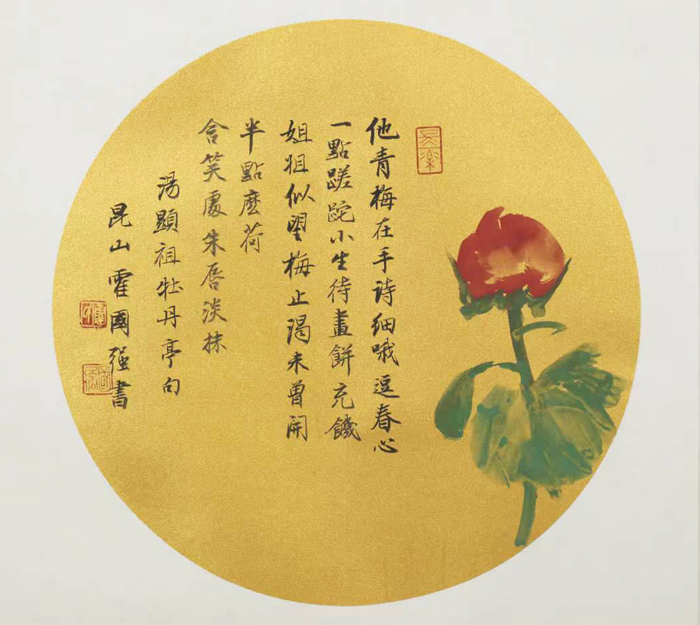 他青梅在手詩細哦逗春心
一點蹉跎小生待畫餅充饑
姐姐似望梅止渴未曾開
半點麼荷
含笑處朱唇淡抹
湯顯祖牡丹亭句
昆山霍國強書